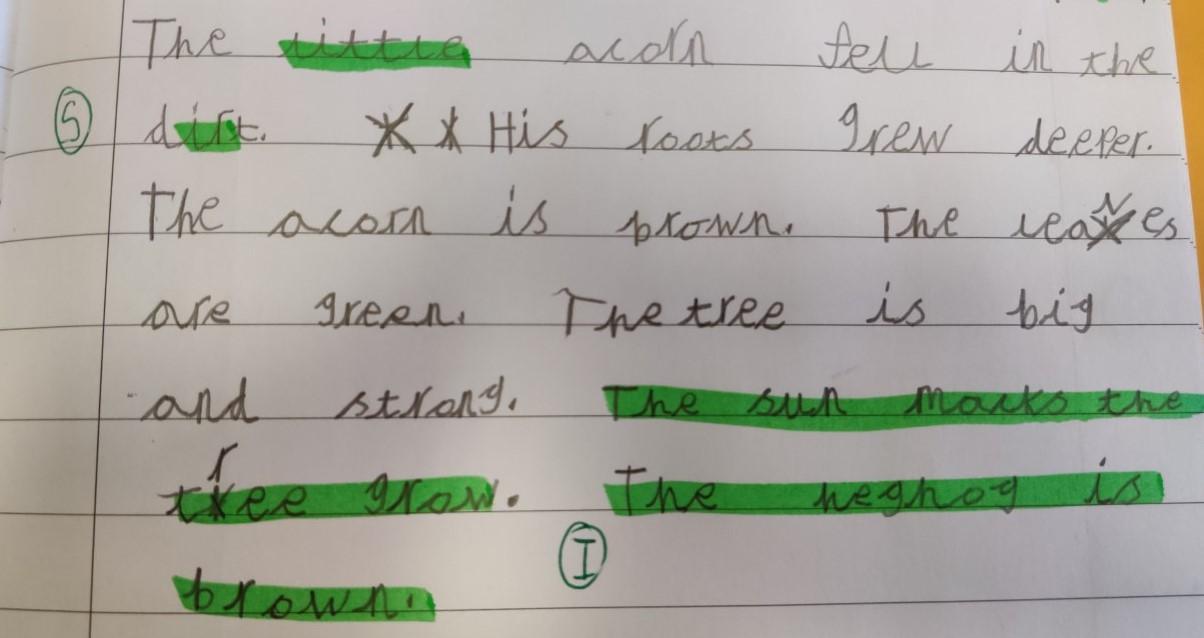 The little acorn fell in the
Ⓢ dirt. His roots grew deeper.
The acorn is brown. The leaves
are green. The tree is big
and strong. The sun macks the
tree grow. The heghog is
brown. Ⓘ